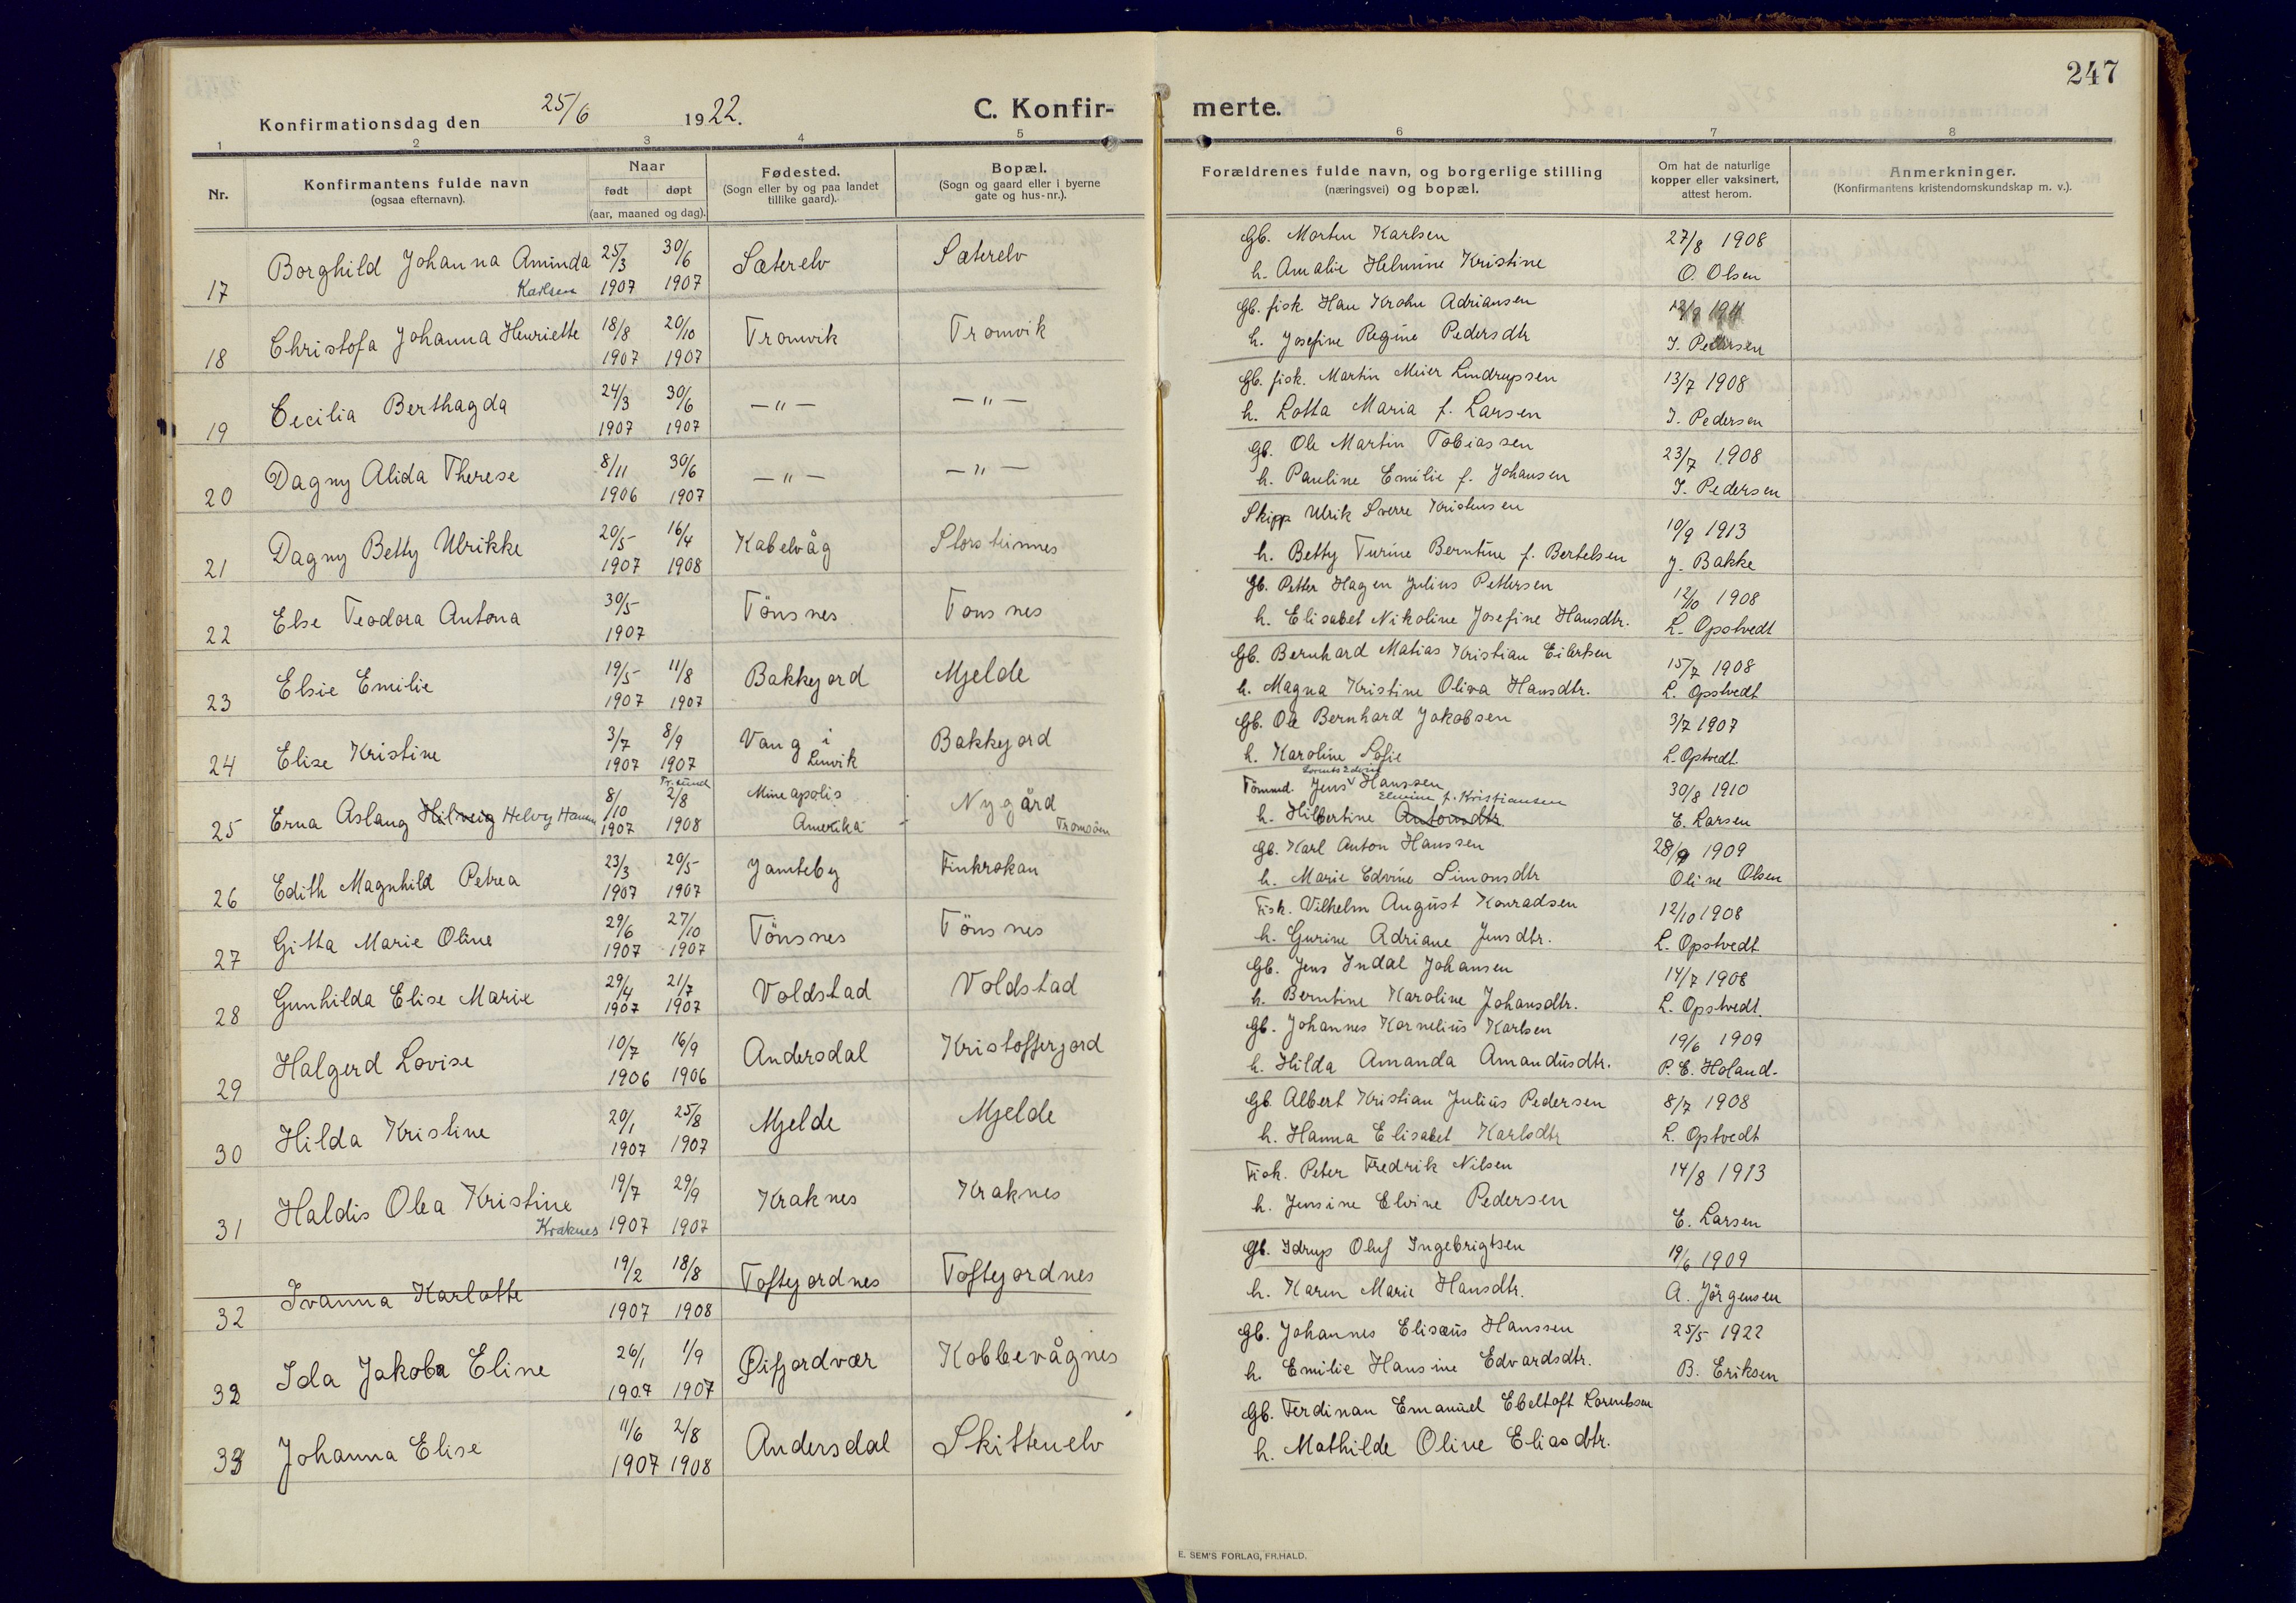 247
Konfirmationsdag den 25/6 1922.
C. Konfir- merte.
1 2 3 4 5 6 7 8
Nr.
Konfirmantens fulde navn
(ogsaa efternavn).
Naar
født døpt
(aar, maaned og dag).
Fødested.
(Sogn eller by og paa landet
tillike gaard).
Bopæl.
(Sogn og gaard eller i byerne
gate og hus-nr.).
Forældrenes fulde navn, og borgerlige stilling
(næringsvei) og bopæl.
Om hat de naturlige
kopper eller vaksinert,
attest herom.
Anmerkninger.
(Konfirmantens kristendomskundskap m. v.).
17 Borghild Johanna Aminda 25/3 30/6 Sæterelv Sæterelv Gb. Morten Karlsen 27/8 1908
Karlsen 1907 1907 h. Amalie Helmine Kristine O. Olsen
18 Christofa Johanna Henriette 18/8 20/10 Tromvik Tromvik Gb. fisk Han Krohn Adriansen
1907 1907 h. Josefine Regine Pedersdtr I. Pedersen
19 Cecilia Berthagda 24/3 30/6 —"— —"— Gb. fisk. Martin Meier Lindrupsen 13/7 1908
1907 1907 h. Lotta Maria f. Larsen I. Pedersen
20 Dagny Alida Therese 8/11 30/6 —"— —"— Gb. Ole Martin Tobiassen 23/7 1908
1906 1907 h. Pauline Emilie f. Johansen I. Pedersen
21 Dagny Betty Ulrikke 20/5 16/4 Kabelvåg Storsteinnes Skipp Ulrik Sverre Kristensen 10/9 1913
1907 1908 h. Betty Turine Berntine f. Bertelsen J. Bakke
22 Else Teodora Antona 30/5 Tönsnes Tonsnes Gb. Petter Hagen Julius Pettersen 12/10 1908
1907 h. Elisabet Nikoline Josefine Hansdtr. L. Opstvedt
23 Elsie Emilie 19/5 11/8 Bakkejord Mjelde Gb. Bernhard Matias Kristian Eilertsen 15/7 1908
1907 1907 h. Magna Kristine Oliva Hansdtr. L. Opstvedt
24 Elise Kristine 3/7 8/9 Vang i Bakkejord Gb. Ole Bernhard Jakobsen 3/7 1907
1907 1907 Lenvik h. Karoline Sofie L. Opstvedt.
25 Erna Aslaug Hilveig Helvy Hansen 8/10 Tr.sund 2/8 Mineapolis Nygård Tömmd. Jens Lorents Edvin Hanssen 30/8 1910
1907 1908 Amerika Tromsöen h. Hilbertine Antonsdtr. Elmine f. Kristiansen E. Larsen
26 Edith Magnhild Petrea 23/3 20/5 Jamteby Finkroken Gb. Karl Anton Hanssen 28/9 1909
1907 1907 h. Marie Edvine Simonsdtr Oline Olsen
27 Gitta Marie Oline 29/6 27/10 Tönsnes Tönsnes Fisk. Vilhelm August Konradsen 12/10 1908
1907 1907 h. Gurine Adriane Jensdtr. L. Opstvedt
28 Gunhilda Elise Marie 29/4 21/7 Voldstad Voldstad Gb. Jens Indal Johansen 14/7 1908
1907 1907 h. Berntine Karoline Johansdtr. L. Opstvedt.
29 Halgerd Lovise 10/7 16/9 Andersdal Kristofferjord Gb. Johannes Kornelius Karlsen 19/6 1909
1906 1906 h. Hilda Amanda Amandusdtr. P. E. Holand.
30 Hilda Kristine 20/1 25/8 Mjelde Mjelde Gb. Albert Kristian Julius Pedersen 8/7 1908
1907 1907 h. Hanna Elisabet Karlsdtr L. Opstvedt
31 Haldis Olea Kristine 19/7 29/9 Kraknes Kraknes Fisk. Peter Fredrik Nilsen 14/8 1913
Kraknes 1907 1907 h. Jensine Elvine Pedersen E. Larsen
32 Ivanna Karlotte 19/2 18/8 Toftejordnes Toftejordnes Gb. Idrup Oluf Ingebrigtsen 19/6 1909
1907 1908 h. Karen Marie Hansdtr. A. Jörgensen
32 Ida Jakoba Eline 26/1 1/9 Øifjordvær Kobbevågnes Gb. Johannes Elisæus Hanssen 25/5 1922
1907 1907 h. Emilie Hansine Edvardsdtr. B. Eriksen
33 Johanna Elise 11/6 2/8 Andersdal Skittenelv Gb. Ferdinan Emanuel Ebeltoft Lorentsen
1907 1908 h. Mathilde Oline Eliasdtr.
E. SEM'S FORLAG, FR.HALD.